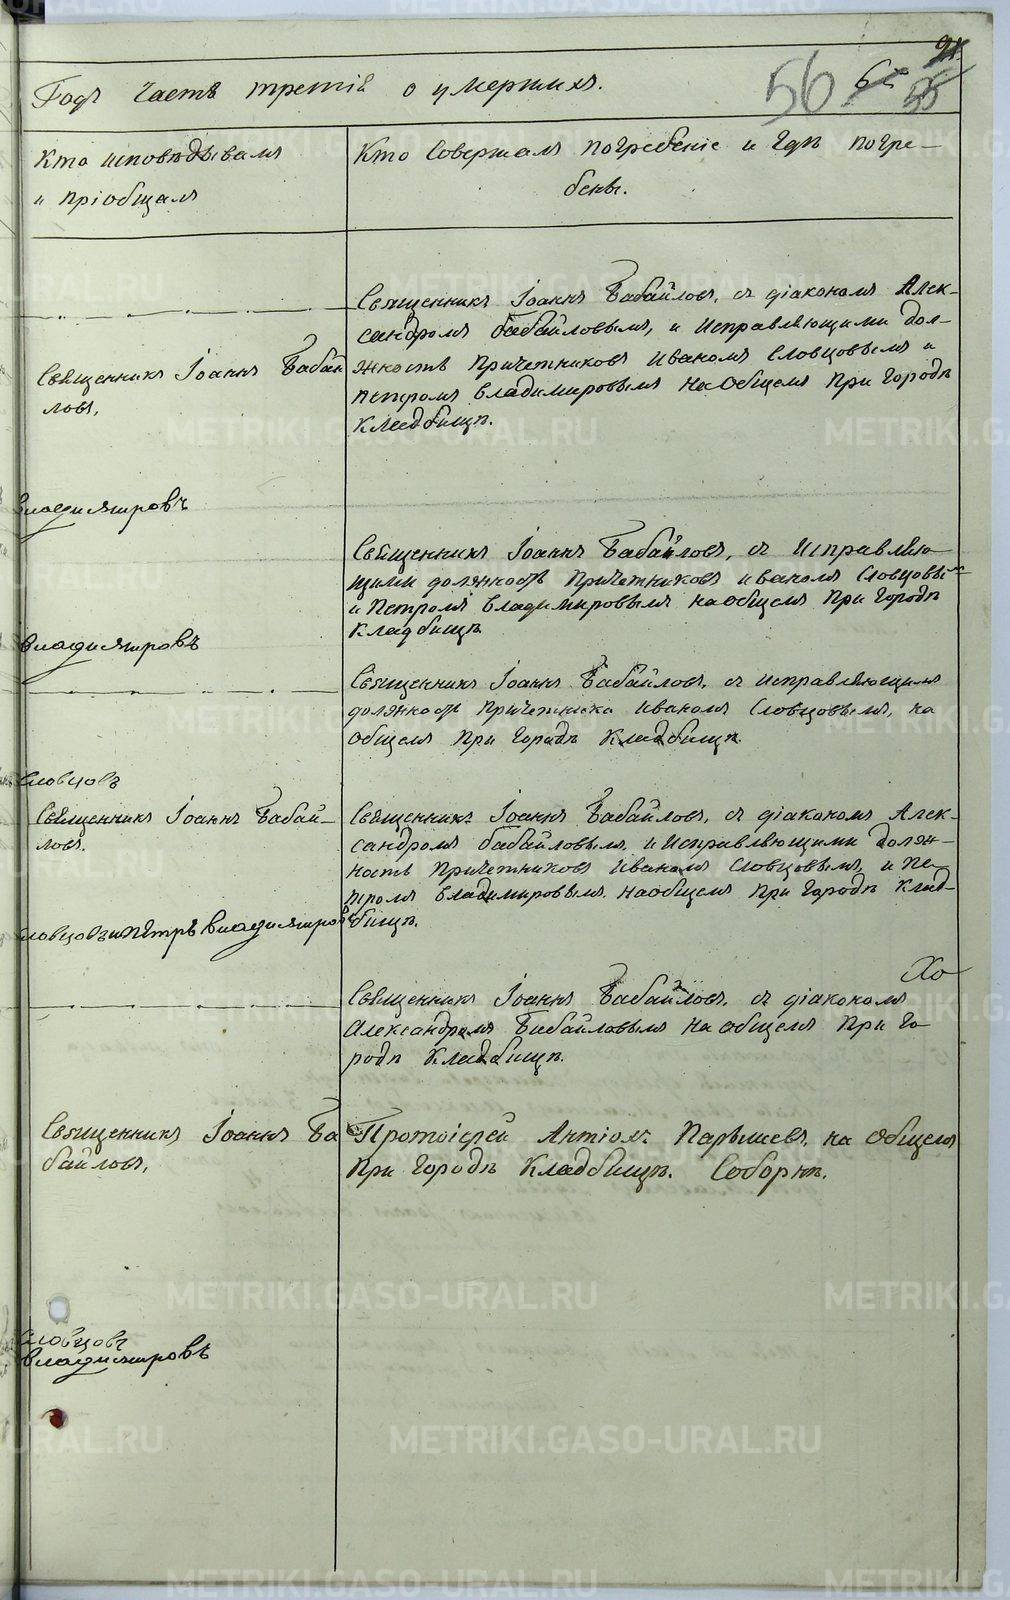 56
55
Годъ Часть третія о умершихъ.
Кто исповѣдывалъ
и пріобщалъ
Кто Совершалъ погребеніе и гдѣ погре-
бены.
Священникъ Іоаннъ Бабайловъ, съ діакономъ Алек-
сандромъ Бабайловымъ, и Исправляющими дол-
жность Причетниковъ Иваномъ Словцовымъ и
Петромъ Владимировымъ на Общемъ При Городѣ
Кладбищѣ.
Священникъ Іоаннъ Бабай
ловъ,
Владимировъ
Священникъ Іоаннъ Бабайловъ, съ Исправляю-
щими должность Причетниковъ Иваномъ Словцовымъ
и Петромъ Владимировымъ на Общемъ При Городѣ
Кладбищѣ
Владимировъ
Священникъ Іоаннъ Бабайловъ, съ исправляющимъ
должность Причетника Иваномъ Словцовымъ, на
Общемъ При Городѣ Кладбищѣ.
Словцовъ
Священникъ Іоаннъ Бабай-
ловъ.
Священникъ Іоаннъ Бабайловъ, съ діакономъ Алек-
сандромъ Бабайловымъ, и Исправляющими долж-
ность Причетниковъ Иваномъ Словцовымъ, и Пе-
тромъ Владимировымъ на общемъ При Городѣ Клад-
бищѣ.
Словцовъ и Пѣтръ Владимировъ
Священникъ Іоаннъ Бабайловъ, съ діакономъ
Александромъ Бабайловымъ на общемъ При Го-
родѣ Кладбищѣ.
Священникъ Іоаннъ Ба
байловъ,
Протоіерей Антіохъ Парышевъ, на Общемъ
При Городѣ Кладбищѣ. Соборнѣ.
Словцовъ
Владимировъ
METRIKI.GASO-URAL.RU